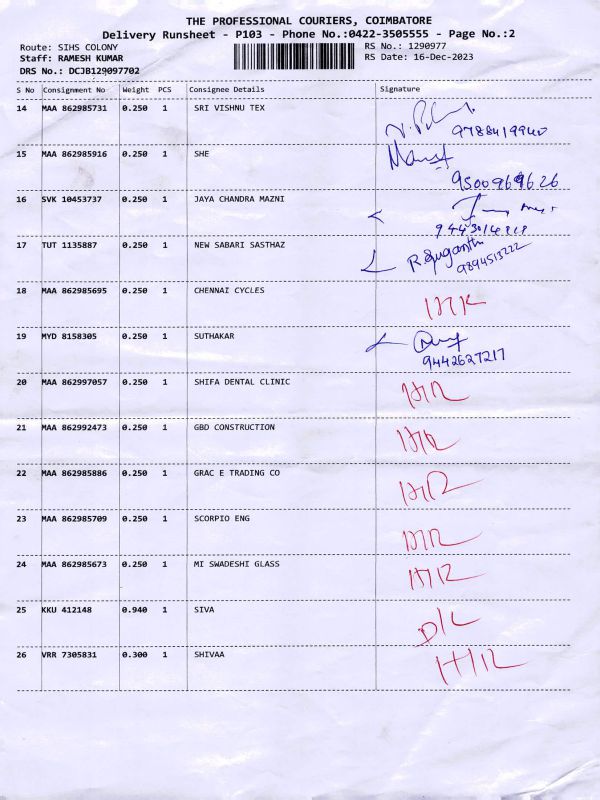 THE PROFESSIONAL COURIERS, COIMBATORE
Delivery Runsheet - P103 - Phone No.:0422-3505555 - Page No.:2
Route: SIHS COLONY RS No.: 1290977
Staff: RAMESH KUMAR RS Date: 16-Dec-2023
DRS No.: DCJB129097702
S No Consignment No Weight PCS Consignee Details Signature
14 MAA 862985731 0.250 1 SRI VISHNU TEX
9788419940
15 MAA 862985916 0.250 1 SHE
9500969626
16 SVK 10453737 0.250 1 JAYA CHANDRA MAZNI
17 TUT 1135887 0.250 1 NEW SABARI SASTHAZ
R. Suganthi
9894513222
18 MAA 862985695 0.250 1 CHENNAI CYCLES
19 MYD 8158305 0.250 1 SUTHAKAR
9442627217
20 MAA 862997057 0.250 1 SHIFA DENTAL CLINIC
21 MAA 862992473 0.250 1 GBD CONSTRUCTION
22 MAA 862985886 0.250 1 GRAC E TRADING CO
23 MAA 862985709 0.250 1 SCORPIO ENG
24 MAA 862985673 0.250 1 MI SWADESHI GLASS
25 KKU 412148 0.940 1 SIVA
D/L
26 VRR 7305831 0.300 1 SHIVAA